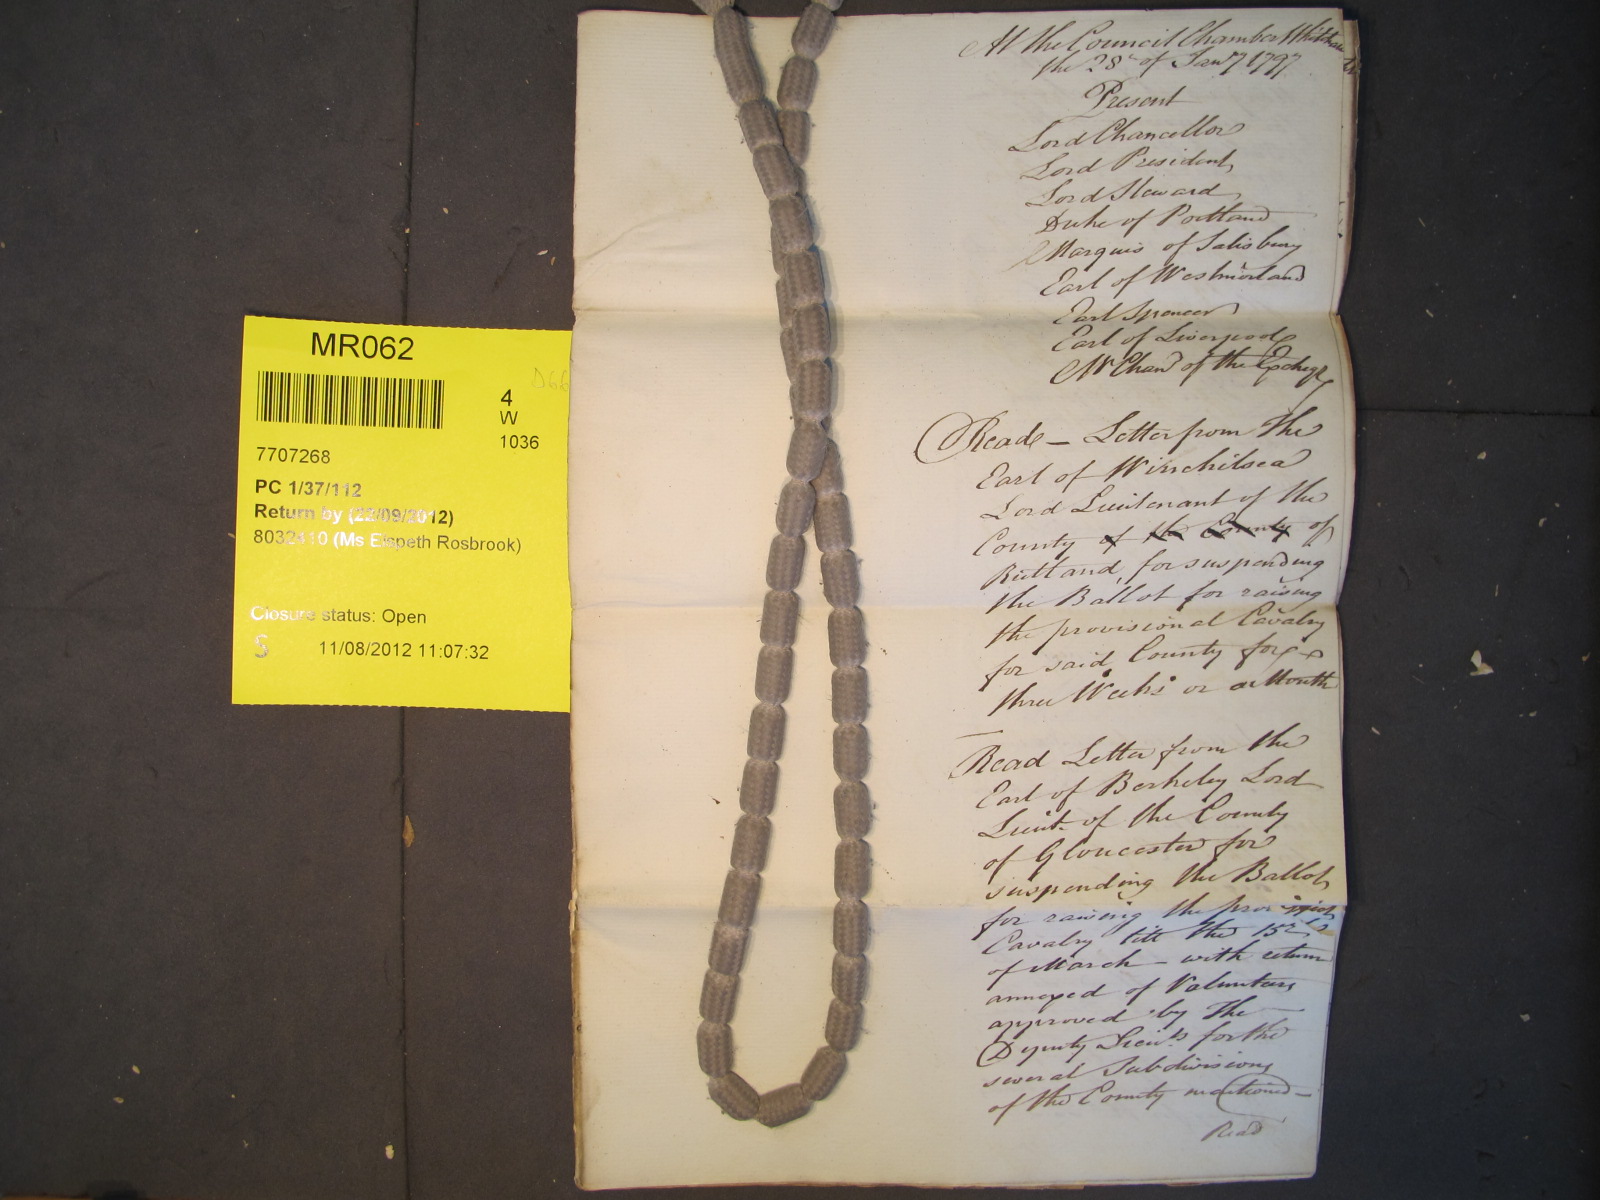 MR062
D66
4
W
1036
7707268
PC 1/37/112
Return by (22/09/2012)
8032410 (Ms Elspeth Rosbrook)
Closure status: Open
S
11/08/2012 11:07:32
At the Council Chamber
the 28th of Jany 1797
Present
Lord Chancellor
Lord President
Lord Steward
Duke of Portland
Marquis of Salisbury
Earl of Westmorland
Earl Spencer
Earl of Liverpool
Mr Chanr of the Excheqr
Read – Letter from the
Earl of Winchilsea
Lord Lieutenant of the
County of the County of
Rutland, for suspending
the Ballot for raising
the provisional Cavalry
for said County for
three Weeks or a Month
Read Letter from the
Earl of Berkeley Lord
Lieut. of the County
of Gloucester for
suspending the Ballot
for raising the
Cavalry till the 15th
of March – with return
annexed of Volunteers
approved by the
Deputy Lieuts for the
several Subdivisions
of the County mentioned –
Read